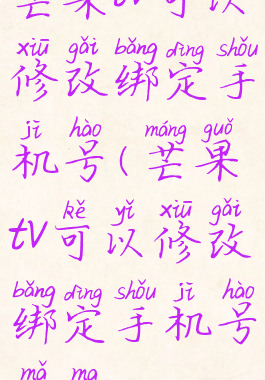 芒果tv可以
xiū gǎi bǎng dìng shǒu
修改绑定手
jī hào máng guǒ
机号(芒果
kě yǐ xiū gǎi
tv可以修改
bǎng dìng shǒu jī hào
绑定手机号
mǎ ma